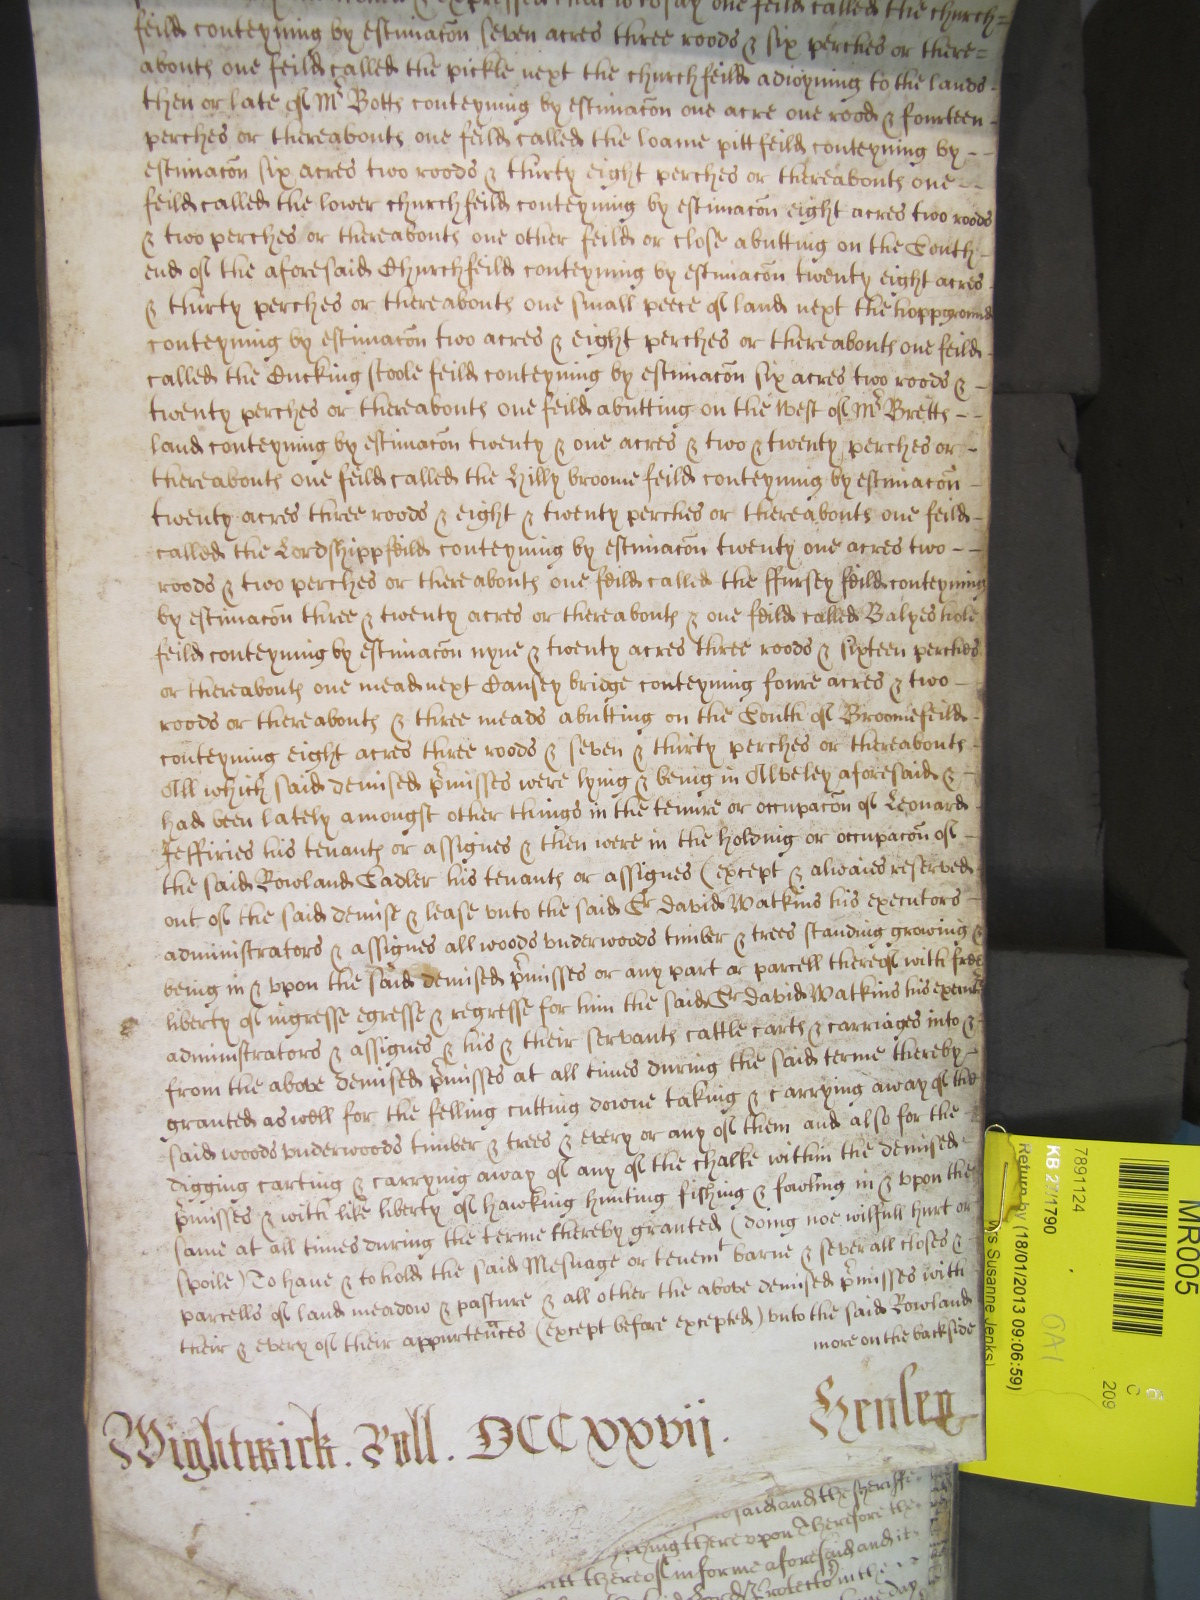 expressed that is to say one feild called the church=
feild conteyning by estimacōn seven acres three roods & six perches or there=
abouts one feild called the pickle next the churchfeild adioyning to the lands -
then or late of Mr Botts conteyning by estimacōn one acre one rood & fourteen -
perches or thereabouts one feild called the loame pitt feild conteyning by - -
estimacōn six acres two roods & thirty eight perches or thereabouts one - -
feild called the lower churchfeild conteyning by estimacōn eight acres two roods
& two perches or thereabouts one other feild or close abutting on the South -
end of the aforesaid Churchfeild conteyning by estimacōn twenty eight acres -
& thirty perches or thereabouts one small peece of land next the hoppground
conteyning by estimacōn two acres & eight perches or thereabouts one feild -
called the Ducking stoole feild conteyning by estimacōn six acres two roods & -
twenty perches or thereabouts one feild abutting on the West of Mr Bretts - -
land conteyning by estimacōn twenty & one acres & two & twenty perches or -
thereabouts one feild called the Hilly broome feild conteyning by estimacōn -
twenty acres three roods & eight & twenty perches or thereabouts one feild -
called the Lordshipp feild conteyning by estimacōn twenty one acres two - -
roods & two perches or thereabouts one feild called the ffursey feild conteyning
by estimacōn three & twenty acres or thereabouts & one feild called Balyes hole
feild conteyning by estimacōn nyne & twenty acres three roods & sixteen perches
or thereabouts one mead next Dansey bridge conteyning foure acres & two -
roods or thereabouts & three meads abutting on the South of Broomefeild -
conteyning eight acres three roods & seven & thirty perches or thereabouts -
All which said demised p̄misses were lying & being in Alveley aforesaid & -
had been lately amongst other things in the tenure or occupacōn of Leonard -
Jeffiries his tenants or assignes & then were in the holding or occupacōn of -
the said Rowland Sadler his tenants or assignes (except & alwaies reserved -
out of the said demise & lease vnto the said Sr David Watkins his executors -
administrators & assignes all woods vnderwoods timber & trees standing growing &
being in & vpon the said demised p̄misses or any part or parcell thereof with free
liberty of ingresse egresse & regresse for him the said Sr David Watkins his execut
administrators & assignes & his & their servants cattle carts & carriages into & -
from the above demised p̄misses at all times during the said terme thereby -
granted as well for the felling cutting downe taking & carrying away of the
said woods vnderwoods timber & trees & every or any of them and also for the -
digging carting & carrying away of any of the chalke within the demised -
p̄misses & with like liberty of hawking hunting fishing & fowling in & vpon the
same at all times during the terme thereby granted (doing noe wilfull hurt or
spoile) To have & to hold the said Mesuage or tenemt barne & severall closes & -
parcells of land meadow & pasture & all other the above demised p̄misses with -
their & every of their appurteñces (except before excepted) vnto the said Rowland
more on the backside
Wightwick. Roll. DCCXXVij. Henley
said and the sheriffe
there vpon Therefore the
thereof in forme aforesaid and it
Protector in the
same day
MR005
7891124
KB 27/1790
Return by (18/01/2013 09:06:59)
Mrs Susanne Jenks)
OA1
C
209